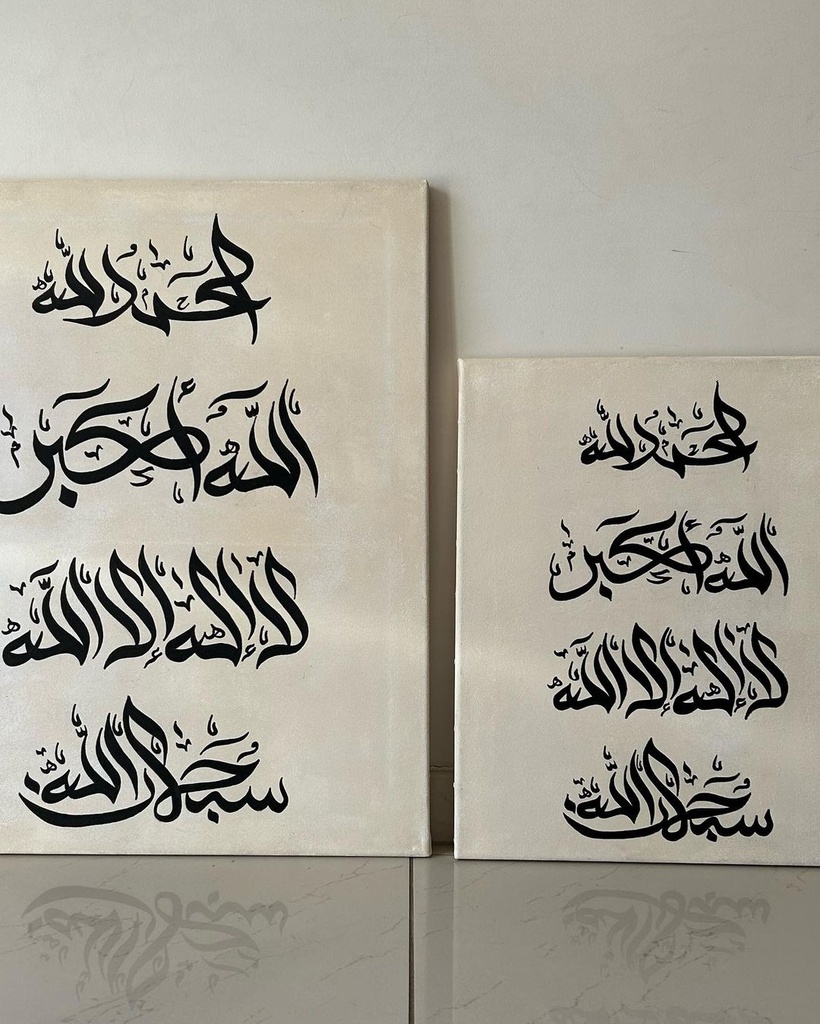 الحمد لله
الله أكبر
لا إله إلا الله
سبحان الله
الحمد لله
الله أكبر
لا إله إلا الله
سبحان الله